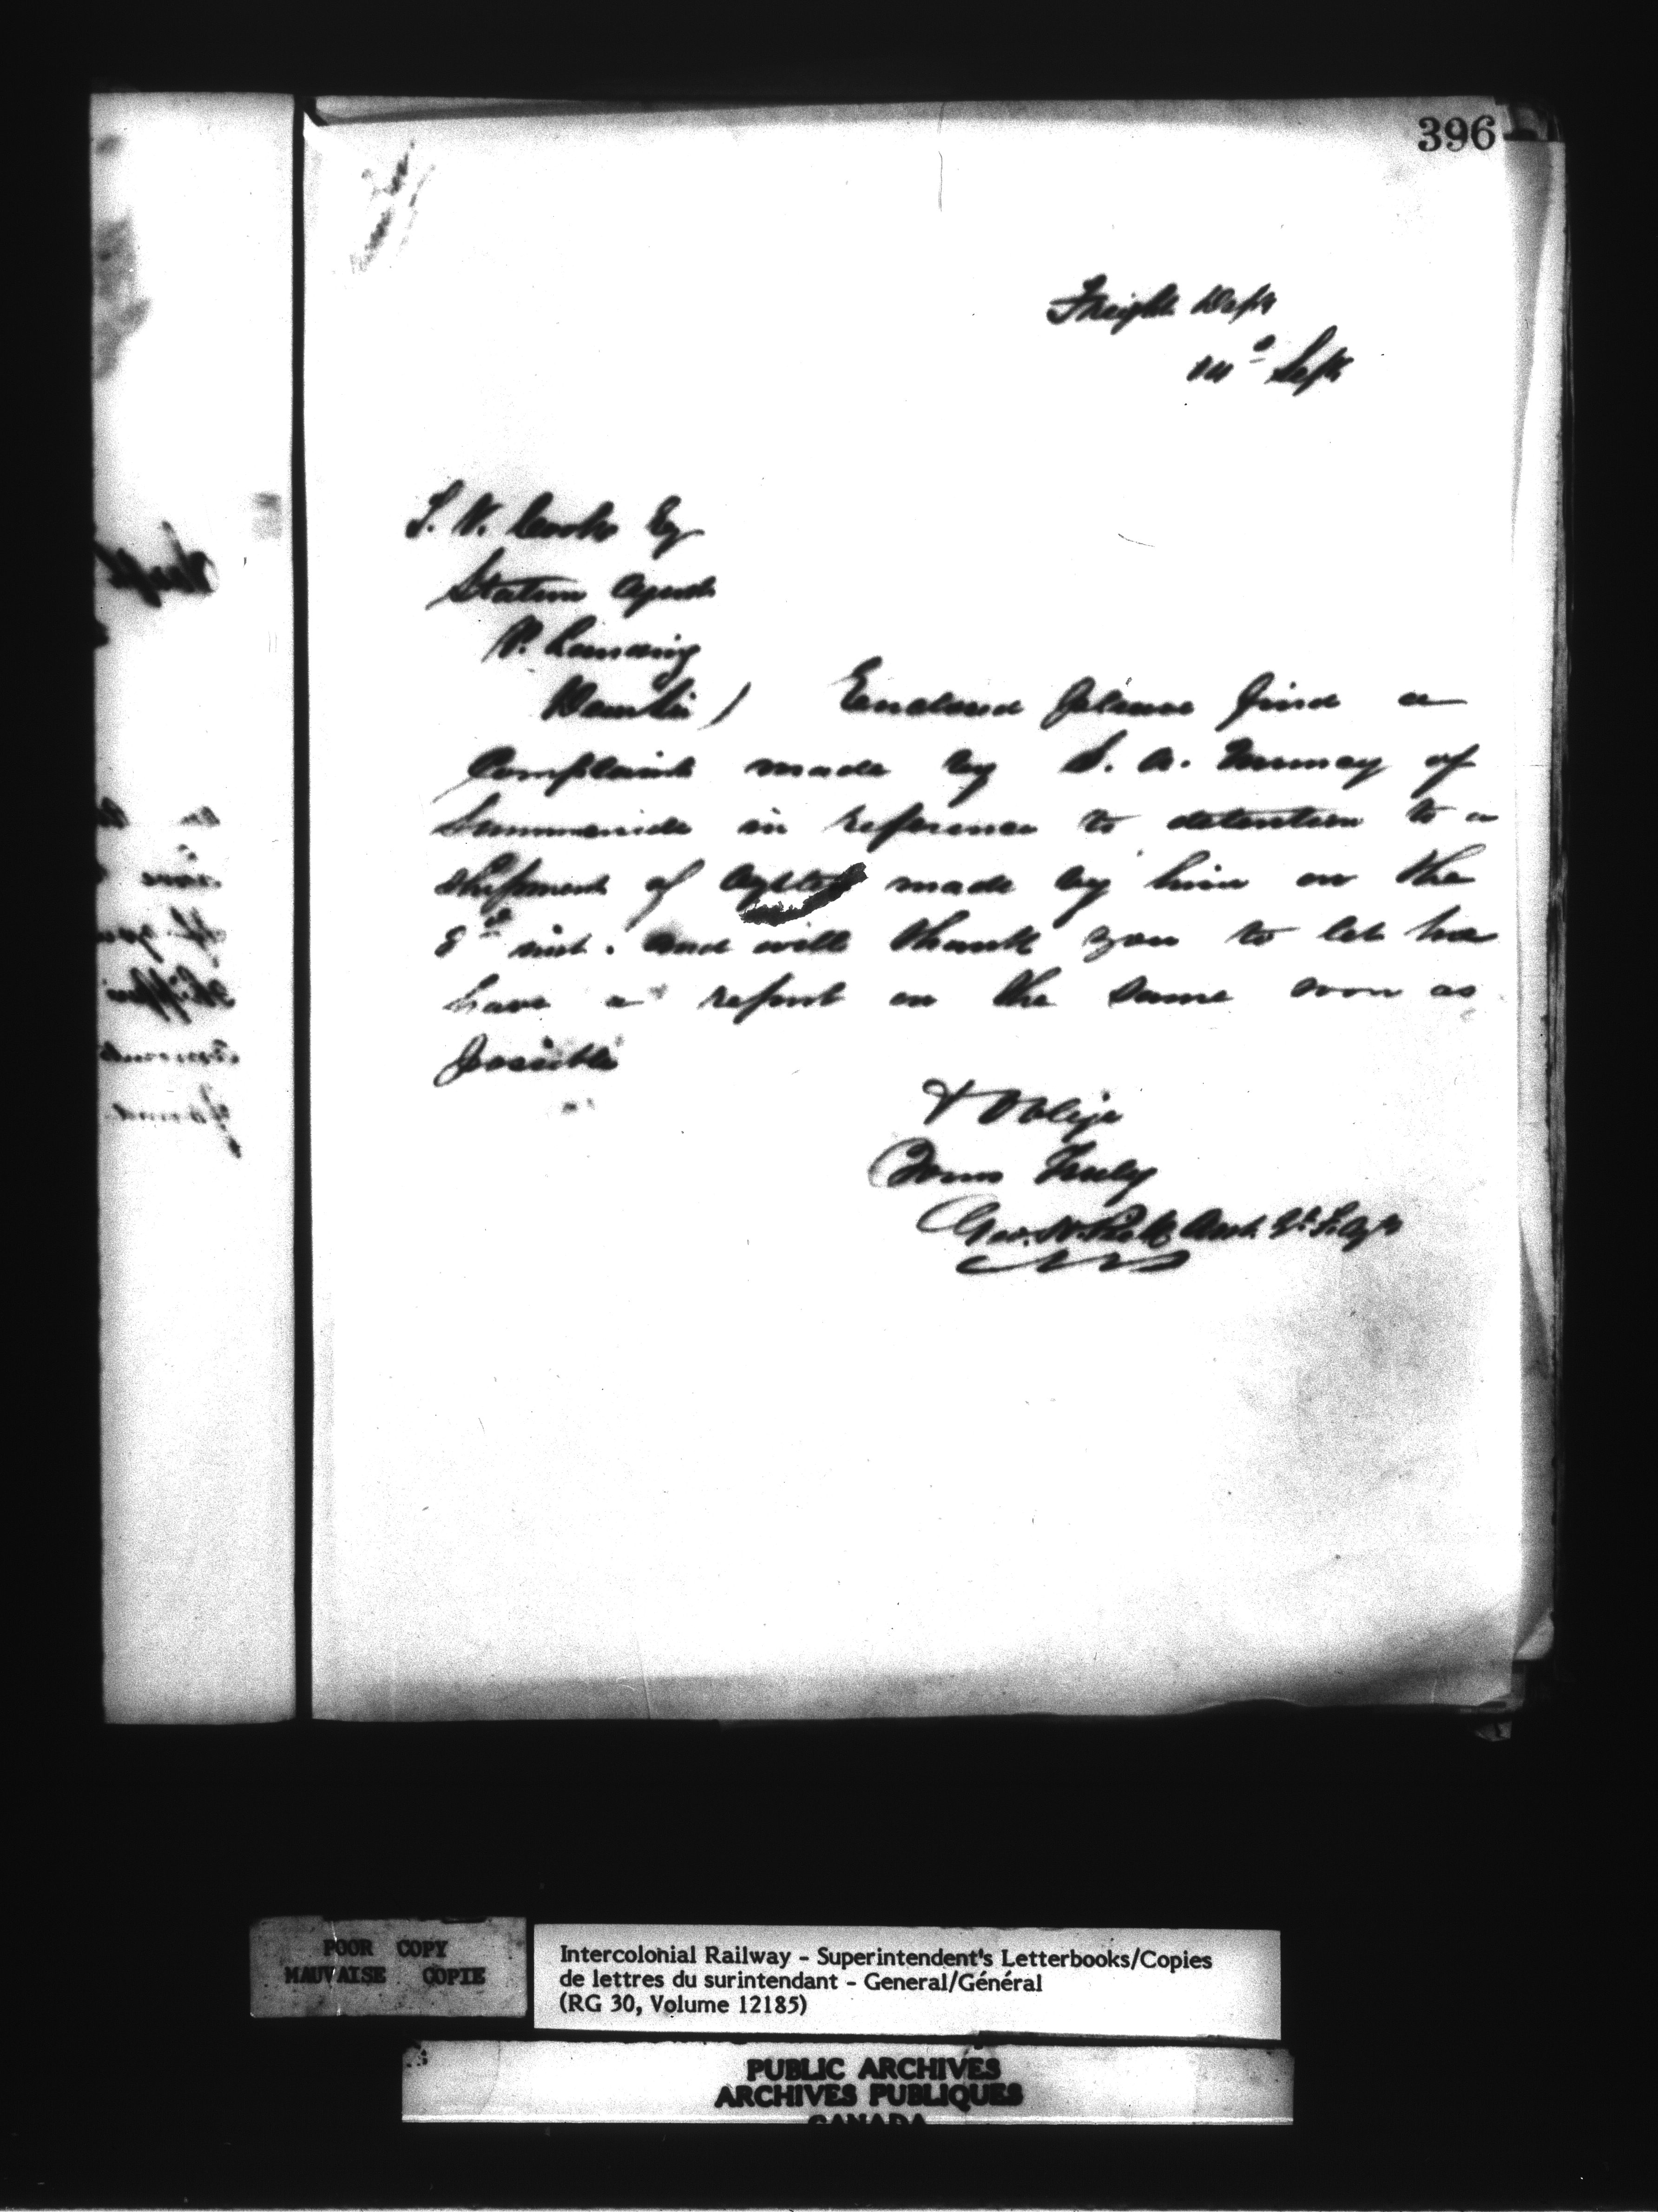 396
Freight Dept
14th Sept
S. W. Cooke Esq
Station Agent
P. Landing
Dear Sir) Enclosed please find a
Complaint made by S. A. Murray of
Summerside in reference to detention to a
shipment of made by him on the
8th inst. and will thank you to let me
have a report on the same soon as
possible
& Oblige
Yours Truly
Geo. W.
POOR COPY
MAUVAISE COPIE
Intercolonial Railway - Superintendent's Letterbooks/Copies
de lettres du surintendant - General/Général
(RG 30, Volume 12185)
PUBLIC ARCHIVES
ARCHIVES PUBLIQUES
CANADA